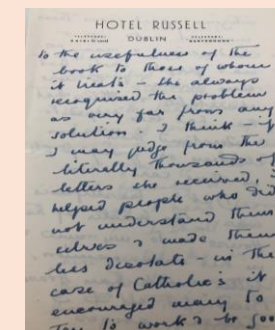 HOTEL RUSSELL
DUBLIN
to the usefulness of the
book to those of whom
it treats – she always
recognised the problem
as very far from any
solution. I think – if
I may judge from the
literally thousands of
letters she received, it
helped people who did
not understand them
selves & made them
less desolate – in the
case of Catholics it
encouraged many to
try to work & be good